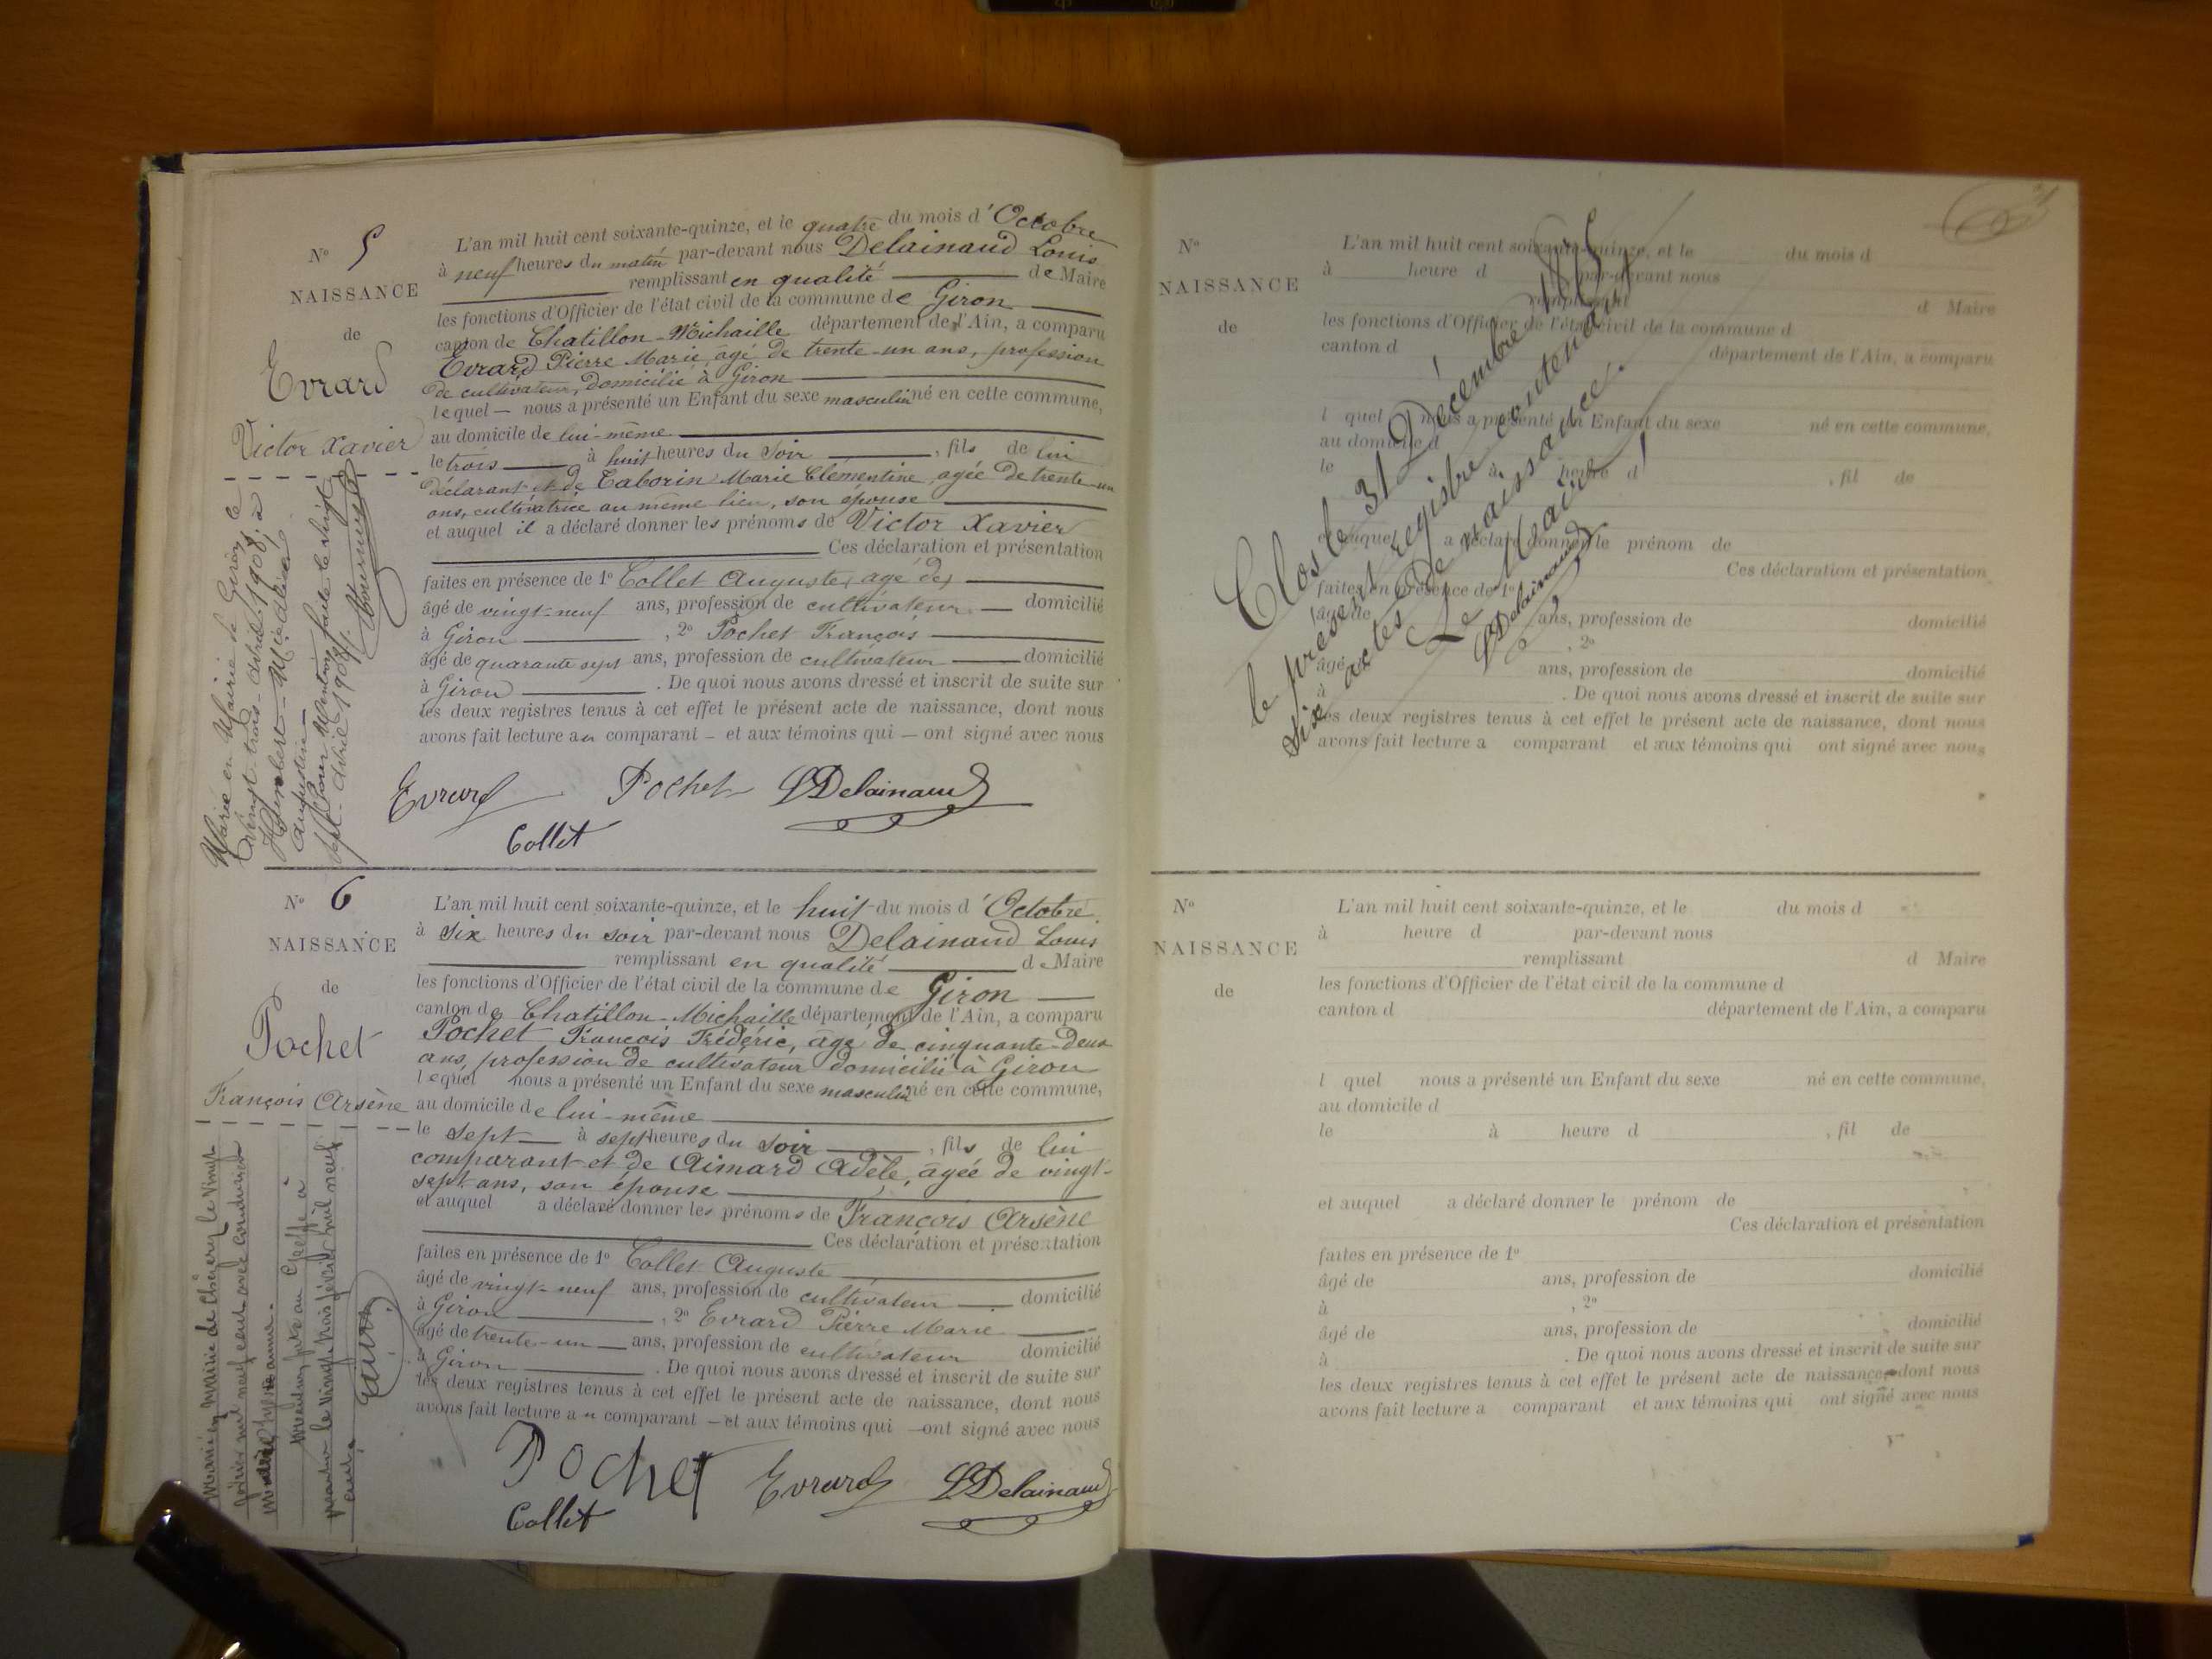 N° 5
NAISSANCE
de
Evrard
Victor Xavier
L'an mil huit cent soixante-quinze, et le quatre du mois d'Octobre
à neuf heures du matin par-devant nous Delainaud Louis
remplissant en qualité de Maire
les fonctions d'Officier de l'état civil de la commune de Giron
canton de Chatillon-Michaille département de l'Ain, a comparu
Evrard Pierre Marie, âgé de trente-un ans, profession
de cultivateur, domicilié à Giron
lequel — nous a présenté un Enfant du sexe masculin né en cette commune,
au domicile de lui-même
le trois à huit heures du soir , fils de lui
déclarant et de Taborin Marie Clémentine, agée de trente-un
ans, cultivatrice au même lieu, son épouse
et auquel il a déclaré donner les prénoms de Victor Xavier
Ces déclaration et présentation
faites en présence de 1° Collet Auguste, agé de,
âgé de vingt-neuf ans, profession de cultivateur domicilié
à Giron , 2° Pochet François
âgé de quarante sept ans, profession de cultivateur domicilié
à Giron . De quoi nous avons dressé et inscrit de suite sur
les deux registres tenus à cet effet le présent acte de naissance, dont nous
avons fait lecture au comparant – et aux témoins qui — ont signé avec nous
Evrard Pochet LDelainaud
Collet
Marié en Mairie de Giron le
vingt-trois avril 1908, à
Humbert
Augustine
Pour Mention faite le vingt
sept avril 1908.
N° 6
NAISSANCE
de
Pochet
François Arsène
L'an mil huit cent soixante-quinze, et le huit du mois d'Octobre
à six heures du soir par-devant nous Delainaud Louis
remplissant en qualité de Maire
les fonctions d'Officier de l'état civil de la commune de Giron
canton de Chatillon-Michaille département de l'Ain, a comparu
Pochet François Frédéric, âgé de cinquante-deux
ans, profession de cultivateur domicilié à Giron
lequel nous a présenté un Enfant du sexe masculin né en cette commune,
au domicile de lui-même
le sept à sept heures du soir , fils de lui
comparant et de Aimard Adèle, âgée de vingt-
sept ans, son épouse
et auquel a déclaré donner les prénoms de François Arsène
Ces déclaration et présentation
faites en présence de 1° Collet Auguste
âgé de vingt-neuf ans, profession de cultivateur domicilié
à Giron , 2° Evrard Pierre Marie
âgé de trente-un ans, profession de cultivateur domicilié
à Giron . De quoi nous avons dressé et inscrit de suite sur
les deux registres tenus à cet effet le présent acte de naissance, dont nous
avons fait lecture au comparant — et aux témoins qui — ont signé avec nous
Pochet Evrard LDelainaud
Collet
Marié en mairie de Chézery le vingt
février mil neuf cent avec
Marie
Mention faite au Greffe à
Nantua le vingt trois février mil neuf
cent
N°
NAISSANCE
de
L'an mil huit cent soixante-quinze, et le du mois d
à heure d par-devant nous
remplissant d Maire
les fonctions d'Officier de l'état civil de la commune d
canton d département de l'Ain, a comparu
l quel nous a présenté un Enfant du sexe né en cette commune,
au domicile d
le à heure d , fil de
et auquel a déclaré donner le prénom de
Ces déclaration et présentation
faites en présence de 1°
âgé de ans, profession de domicilié
, 2°
âgé ans, profession de domicilié
à . De quoi nous avons dressé et inscrit de suite sur
les deux registres tenus à cet effet le présent acte de naissance, dont nous
avons fait lecture a comparant et aux témoins qui ont signé avec nous
Clos le 31 Décembre 1875
le présent registre contenant
Six actes de naissance.
Le Maire
LDelainaud
N°
NAISSANCE
de
L'an mil huit cent soixante-quinze, et le du mois d
à heure d par-devant nous
remplissant d Maire
les fonctions d'Officier de l'état civil de la commune d
canton d département de l'Ain, a comparu
l quel nous a présenté un Enfant du sexe né en cette commune,
au domicile d
le à heure d , fil de
et auquel a déclaré donner le prénom de
Ces déclaration et présentation
faites en présence de 1°
âgé de ans, profession de domicilié
à , 2°
âgé de ans, profession de domicilié
à . De quoi nous avons dressé et inscrit de suite sur
les deux registres tenus à cet effet le présent acte de naissance, dont nous
avons fait lecture a comparant et aux témoins qui ont signé avec nous